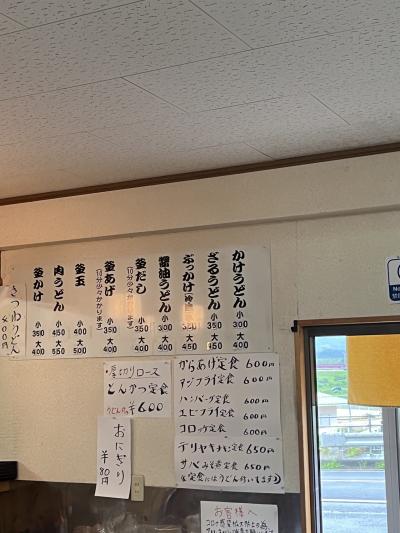 かけうどん 小300 大400
ざるうどん 小350 大450
ぶっかけ
醤油うどん 小300 大400
釜だし (10分少々かかります) 小350 大400
釜あげ (10分少々かかります) 小350 大400
釜玉 小400 大500
肉うどん 小450 大550
釜かけ 小350 大400
きつねうどん ¥400円
厚切りロース
とんかつ定食
うどん付 ¥600
おにぎり
¥80円
からあげ定食 600円
アジフライ定食 600円
ハンバーグ定食 600円
エビフライ定食 600円
コロッケ定食 600円
テリヤキチキン定食 650円
サバみそ煮定食 650円
(定食にはうどん付いてます)
お客様へ
コロナ感染拡大防止の為